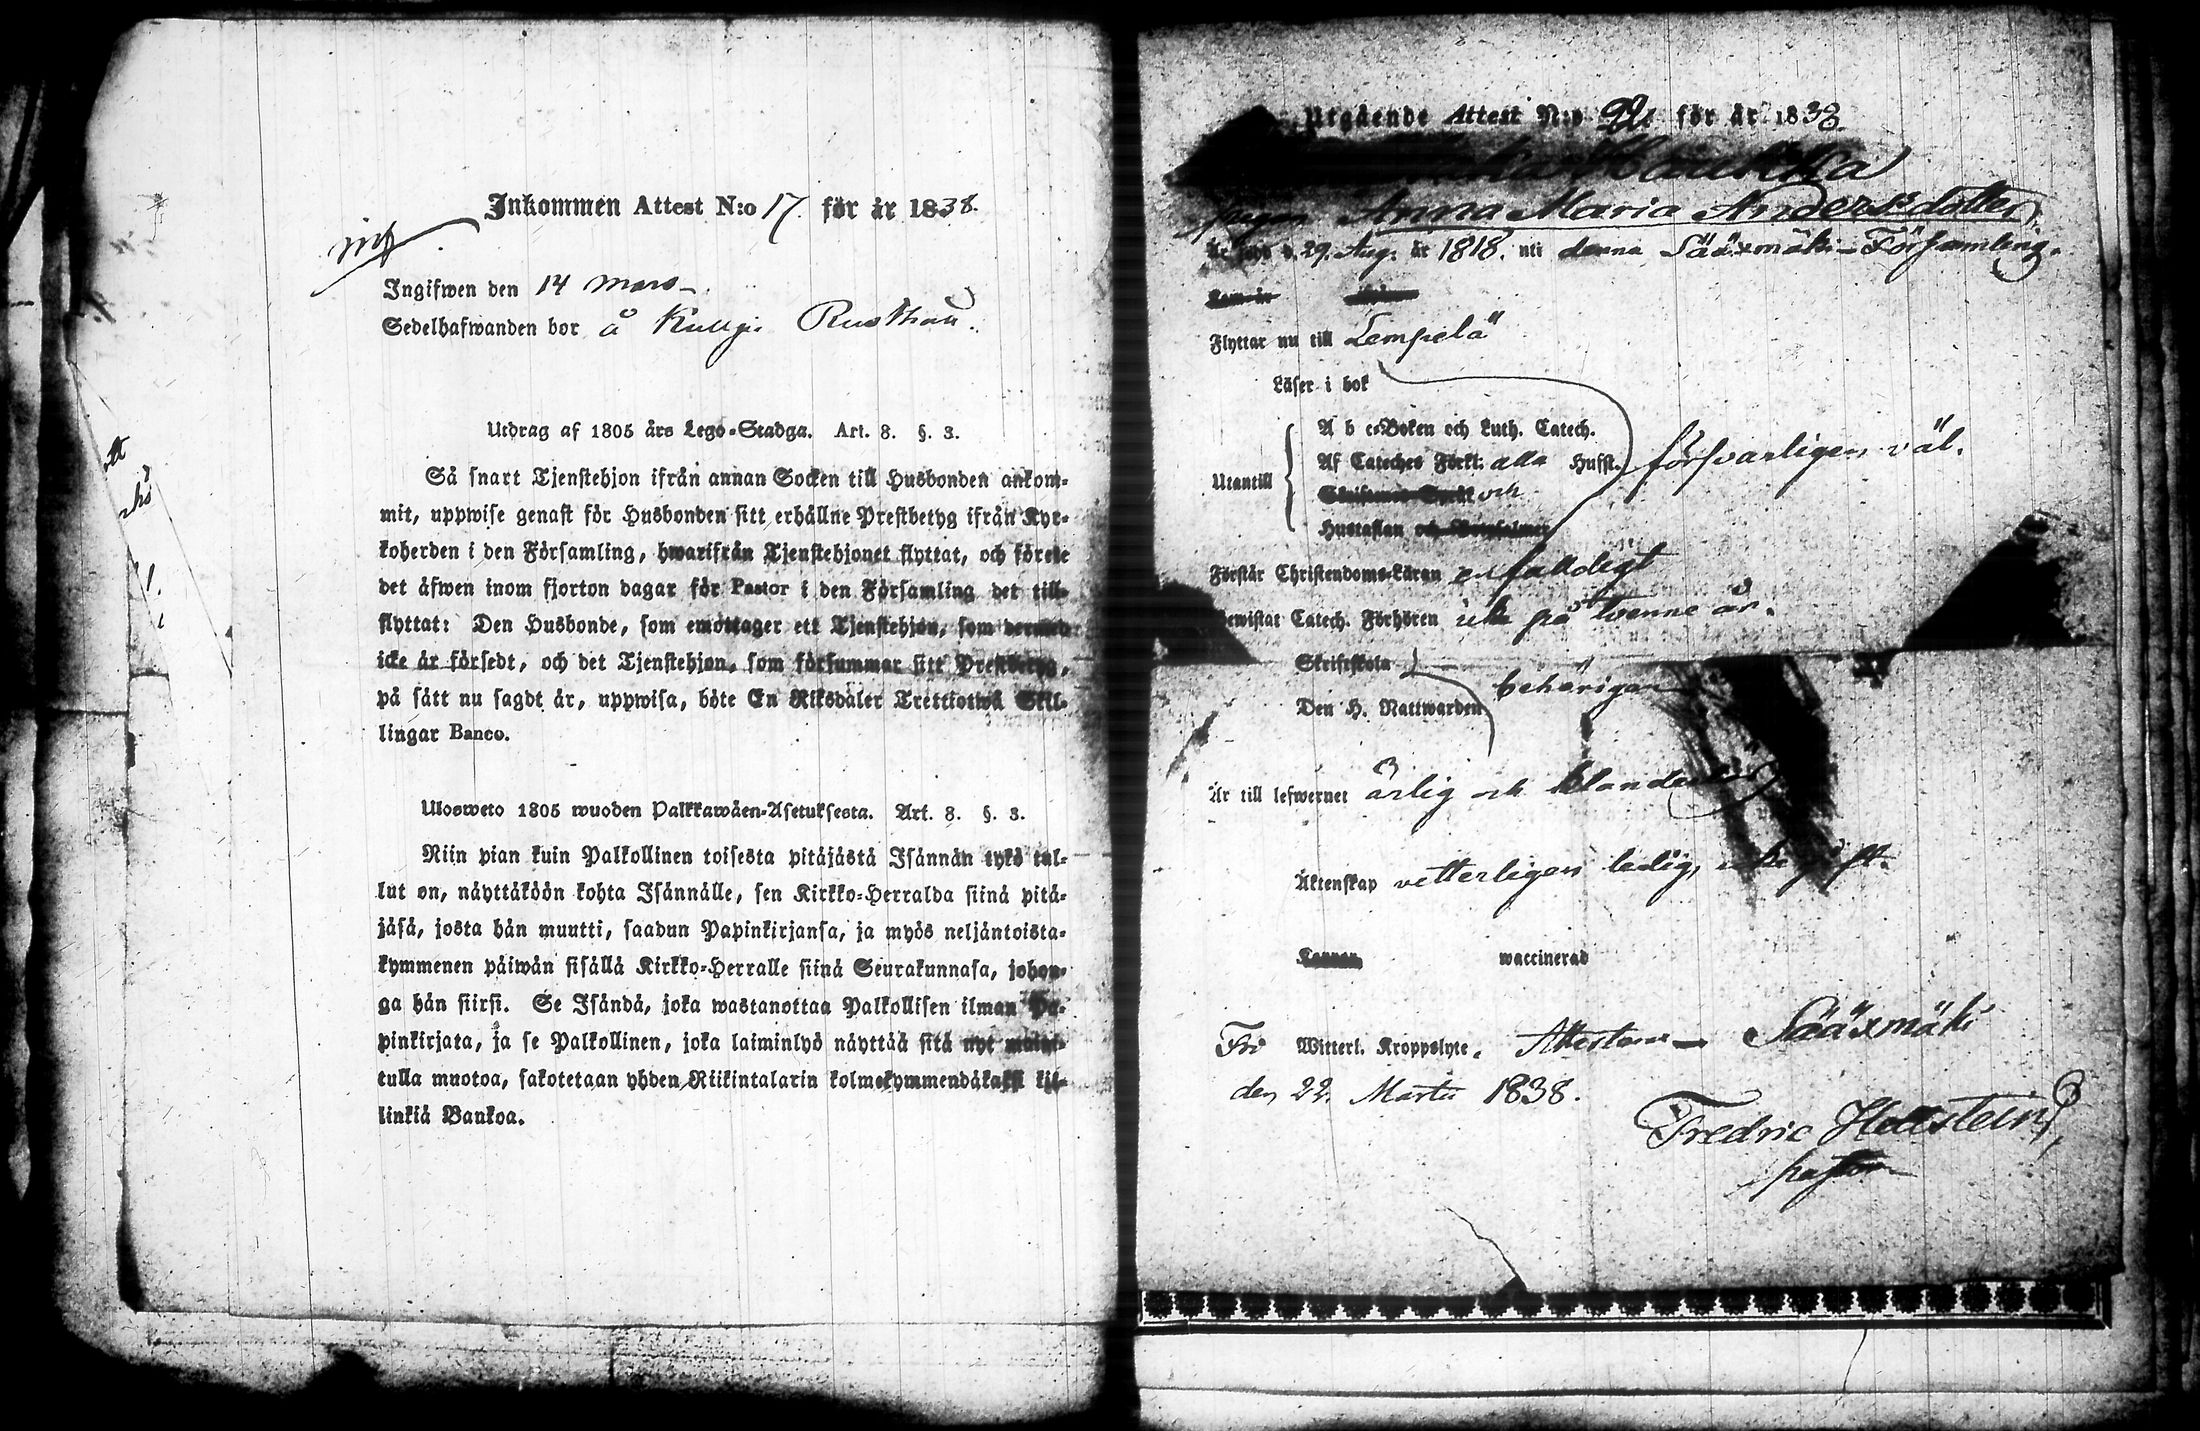 Inkommen Attest N:o 17. för år 1838.
Ingifwen den 14 Mars
Sedelhafwanden bor å
Utdrag af 1805 års Lego-Stadga. Art. 8. §. 3.
Så snart Tjenstehjon ifrån annan Socken till Husbonden ankom-
mit, uppwise genast för Husbonden sitt erhållne Prestbetyg ifrån Kyr-
koherden i den Församling, hwarifrån Tjenstehjonet flyttat, och förete
det äfwen inom fjorton dagar för Pastor i den Församling det till-
flyttat: Den Husbonde, som emottager ett Tjenstehjon, som dermed
icke är försedt, och det Tjenstehjon, som försummar sitt Prestbetyg,
på sätt nu sagdt är, uppwisa, böte En Riksdaler Trettiotwå Skil-
lingar Banco.
Ulosweto 1805 wuoden Palkkawäen-Asetuksesta. Art. 8. §. 3.
Niin pian kuin Palkollinen toisesta pitäjästä Isännän tykö tul-
lut on, näyttäköön kohta Isännälle, sen Kirkko-Herralda siinä pitä-
jäsä, josta hän muutti, saadun Papinkirjansa, ja myös neljäntoista-
kymmenen päiwän sisällä Kirkko-Herralle siinä Seurakunnasa, johon-
ga hän siirsi. Se Isändä, joka wastanottaa Palkollisen ilman Pa-
pinkirjata, ja se Palkollinen, joka laiminlyö näyttää sitä nyt maini-
tulla muotoa, sakotetaan yhden Riikintalarin kolmekymmendäkaksi kil-
linkiä Bankoa.
Utgående Attest N:o för år 1838.
pigan Anna Maria Andersdotter
Är född d. 29. Aug. år 1818. uti denna Sääxmäki Församling.
Flyttar nu till Lempelä
Läser i bok
A b c-Boken och Luth. Catech.
Utantill Af Cateches Förkl: alla Hufst. försvarligen väl.
och
Hustaflan
Förstår Christendoms-Läran enfalldigt
Bewistat Catech. Förhören icke på tvenne år.
Skriftskola
Den H. Nattwarden behörigen
Är till lefwernet ärlig och
Äktenskap vetterligen ledig,
waccinerad
Fri Witterl. Kroppslyte. Attesteras Sääxmäki
den 22. Martii 1838.
Fredric
pastor